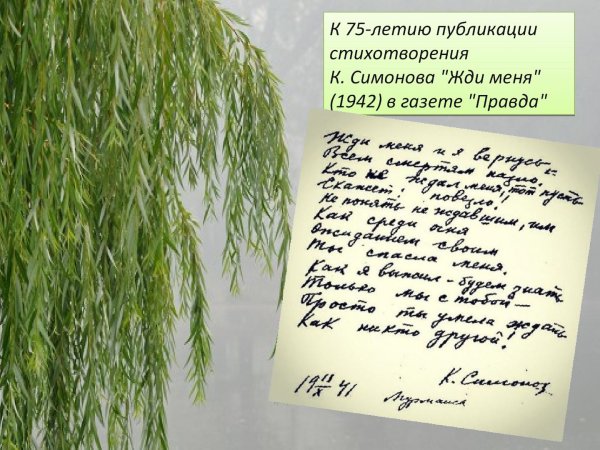 К 75-летию публикации
стихотворения
К. Симонова "Жди меня"
(1942) в газете "Правда"
Жди меня и я вернусь
Всем смертям назло.
Кто не ждал меня, тот пусть
Скажет: повезло!
Не понять не ждавшим, им
Как среди огня
Ожиданием своим
Ты спасла меня.
Как я выжил – будем знать
Только мы с тобой –
Просто ты умела ждать
Как никто другой!
К. Симонов
19 13/X 41
Мурманск